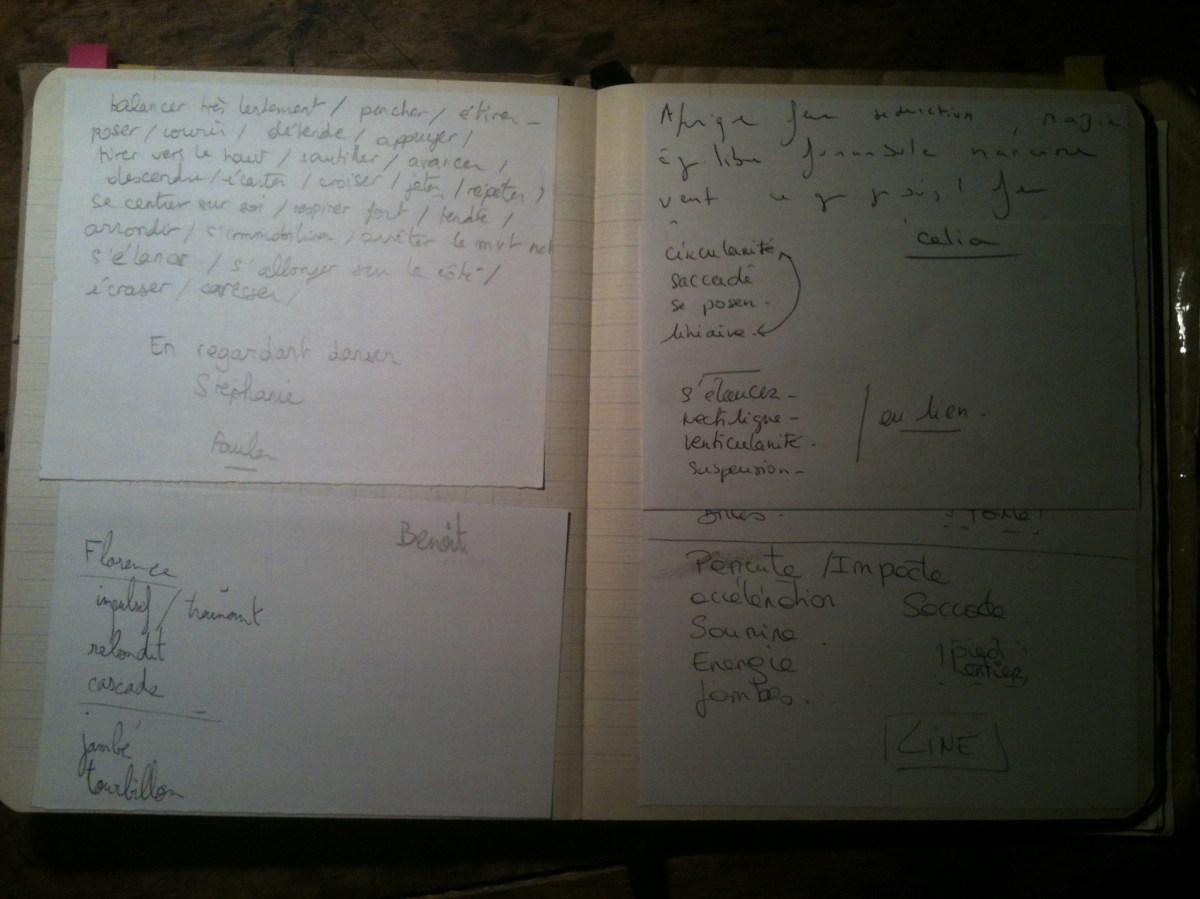 balancer très lentement / pencher / étirer -
poser / courir / détendre / appuyer /
tirer vers le haut / sautiller / avancer /
descendre / écarter / croiser / jeter / répéter /
se centrer sur soi / respirer fort / tendre /
arrondir / s'immobiliser / arrêter le mvt net
s'élancer / s'allonger sur le côté /
écraser / caresser /
En regardant danser
Stéphanie
Benoît
Florence
impulsif / trainant
rebondit
cascade
jambé
tourbillon
Afrique feu séduction, magie
équilibre funambule
vent ce que je suis! feu
celia
circularité
saccadé
se poser.
linéaire
s'élancer -
rectiligne -
verticularité.
suspension -
en lien.
Percute / Impacte
accélération Saccade
Sourire
Energie ! pied entier
Jambes.
LINE